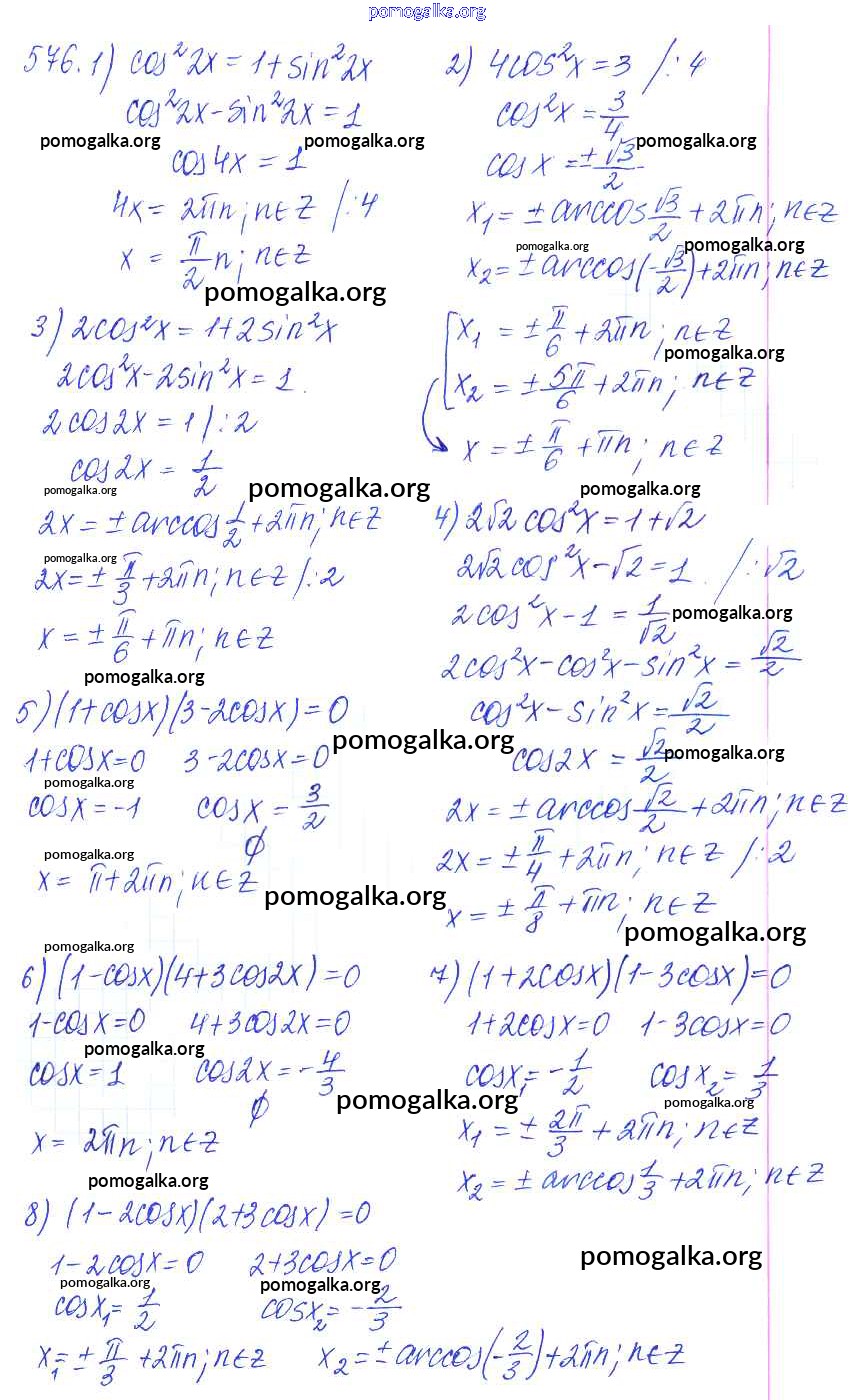 pomogalka.org
576. 1) cos²2x = 1 + sin²2x
cos²2x - sin²2x = 1
pomogalka.org pomogalka.org
cos4x = 1
4x = 2πn; n∈Z /:4
x = π/2 n; n∈Z
pomogalka.org
2) 4cos²x = 3 /:4
cos²x = 3/4
pomogalka.org
cosx = ±√3/2
x₁ = ± arccos √3/2 + 2πn; n∈Z
pomogalka.org pomogalka.org
x₂ = ± arccos(-√3/2) + 2πn; n∈Z
x₁ = ± π/6 + 2πn; n∈Z
pomogalka.org
x₂ = ± 5π/6 + 2πn; n∈Z
x = ± π/6 + πn; n∈Z
3) 2cos²x = 1 + 2sin²x
2cos²x - 2sin²x = 1
2cos2x = 1 /:2
cos2x = 1/2
pomogalka.org pomogalka.org
2x = ± arccos 1/2 + 2πn; n∈Z
pomogalka.org
2x = ± π/3 + 2πn; n∈Z /:2
x = ± π/6 + πn; n∈Z
pomogalka.org
4) 2√2 cos²x = 1 + √2
2√2 cos²x - √2 = 1 /:√2
2cos²x - 1 = 1/√2
pomogalka.org
2cos²x - cos²x - sin²x = √2/2
cos²x - sin²x = √2/2
cos2x = √2/2
pomogalka.org
2x = ± arccos √2/2 + 2πn; n∈Z
2x = ± π/4 + 2πn; n∈Z /:2
x = ± π/8 + πn; n∈Z
pomogalka.org
5) (1+cosx)(3-2cosx) = 0
pomogalka.org
1+cosx=0 3-2cosx=0
pomogalka.org
cosx = -1 cosx = 3/2
∅
pomogalka.org
x = π + 2πn; n∈Z
pomogalka.org
pomogalka.org
6) (1-cosx)(4+3cos2x) = 0
1-cosx=0 4+3cos2x=0
pomogalka.org
cosx = 1 cos2x = -4/3
∅
pomogalka.org
x = 2πn; n∈Z
pomogalka.org
7) (1+2cosx)(1-3cosx)=0
1+2cosx=0 1-3cosx=0
cosx₁ = -1/2 cosx₂ = 1/3
pomogalka.org
x₁ = ± 2π/3 + 2πn; n∈Z
x₂ = ± arccos 1/3 + 2πn; n∈Z
8) (1-2cosx)(2+3cosx) = 0
1-2cosx=0 2+3cosx=0
pomogalka.org pomogalka.org pomogalka.org
cosx₁ = 1/2 cosx₂ = -2/3
x₁ = ± π/3 + 2πn; n∈Z x₂ = ± arccos(-2/3) + 2πn; n∈Z